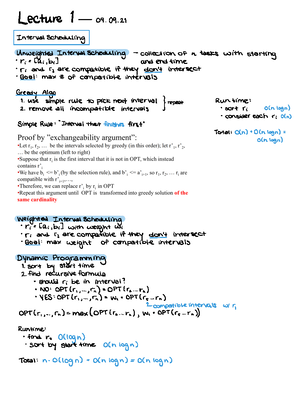 Lecture 1 — 09.09.21
Interval Scheduling
Unweighted Interval Scheduling - collection of n tasks with starting
and end time
• rᵢ = [aᵢ, bᵢ]
• rᵢ and rⱼ are compatible if they don't intersect
• Goal: max # of compatible intervals
Greedy Algo
1. use simple rule to pick next interval
2. remove all incompatible intervals
} repeat
Simple Rule: "Interval that finishes first"
Runtime:
• sort rᵢ O(n log n)
• consider each rᵢ O(n)
Total: O(n) + O(n log n) =
O(n log n)
Proof by "exchangeability argument":
•Let r₁, r₂, … be the intervals selected by greedy (in this order); let r'₁, r'₂,
… be the optimum (left to right)
•Suppose that rᵢ is the first interval that it is not in OPT, which instead
contains r'ᵢ
•We have bᵢ <= b'ᵢ (by the selection rule), and b'ᵢ <= a'ᵢ₊₁, so r₁, r₂, … rᵢ are
compatible with r'ᵢ₊₁,…
•Therefore, we can replace r'ᵢ by rᵢ in OPT
•Repeat this argument until OPT is transformed into greedy solution of the
same cardinality
Weighted Interval Scheduling
• rᵢ = [aᵢ, bᵢ] with weight wᵢ
• rᵢ and rⱼ are compatible if they don't intersect
• Goal: max weight of compatible intervals
Dynamic Programming
1. sort by start time
2. find recursive formula
• should r₁ be in interval?
• NO: OPT(r₁,…,rₙ) = OPT(r₂…rₙ)
• YES: OPT(r₁,…,rₙ) = w₁ + OPT(rₖ…rₙ)
compatible intervals w/ r₁
OPT(r₁,…,rₙ) = max(OPT(r₂…rₙ), w₁ + OPT(rₖ…rₙ))
Runtime:
• find rₖ O(log n)
• sort by start time O(n log n)
Total: n · O(log n) + O(n log n) = O(n log n)